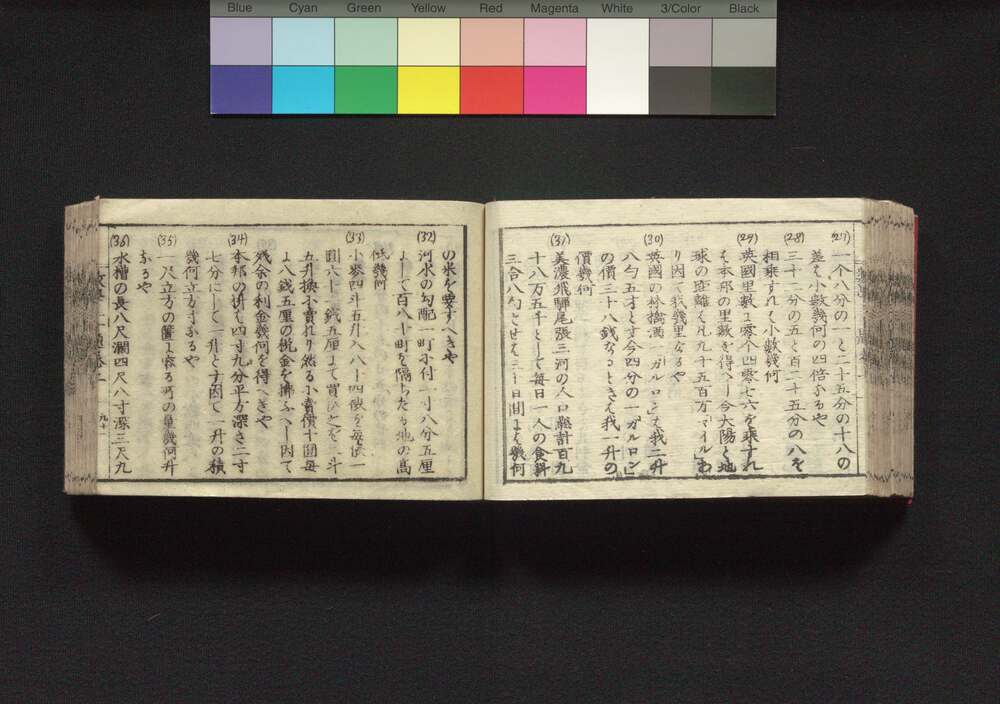 Blue Cyan Green Yellow Red Magenta White 3/Color Black
(27) 一个八分の一と二十五分の十八の
差は小數幾何の四倍なるや
(28) 三十二分の五と百二十五分の八を
相乗すれは小數幾何
(29) 英國里數に零个四零七六を乗すれ
は本邦の里數を得へし今大陽と地
球の距離は凡九千五百万「マイル」あ
り因て我幾里なるや
(30) 英國の林檎酒一「ガルロン」は我二升
八勺五才とす今四分の一「ガルロン」
の價三十八銭なるときは我一升の
價幾何
(31) 美濃飛騨尾張三河の人口總計百九
十八万五千として毎日一人の食料
三合八勺とせは三十日間には幾何
の米を要すへきや
(32) 河水の勾配一町に付一寸八分五厘
として百八十町を隔たる地の高
低幾何
(33) 小麥四斗五升入八十四俵を毎俵一
圓六十二銭五厘にて買ひ之を一斗
五升換に小賣せり然る小賣價十圓毎
に八銭五厘の税金を拂ふへし因て
残余の利金幾何を得へきや
(34) 本邦の桝は四寸九分平方深さ二寸
七分にして一升とす因て一升の積
幾何立方寸なるや
(35) 一尺立方の匱に容る可の量幾何升
なるや
(36) 水槽の長八尺濶四尺八寸深三尺九